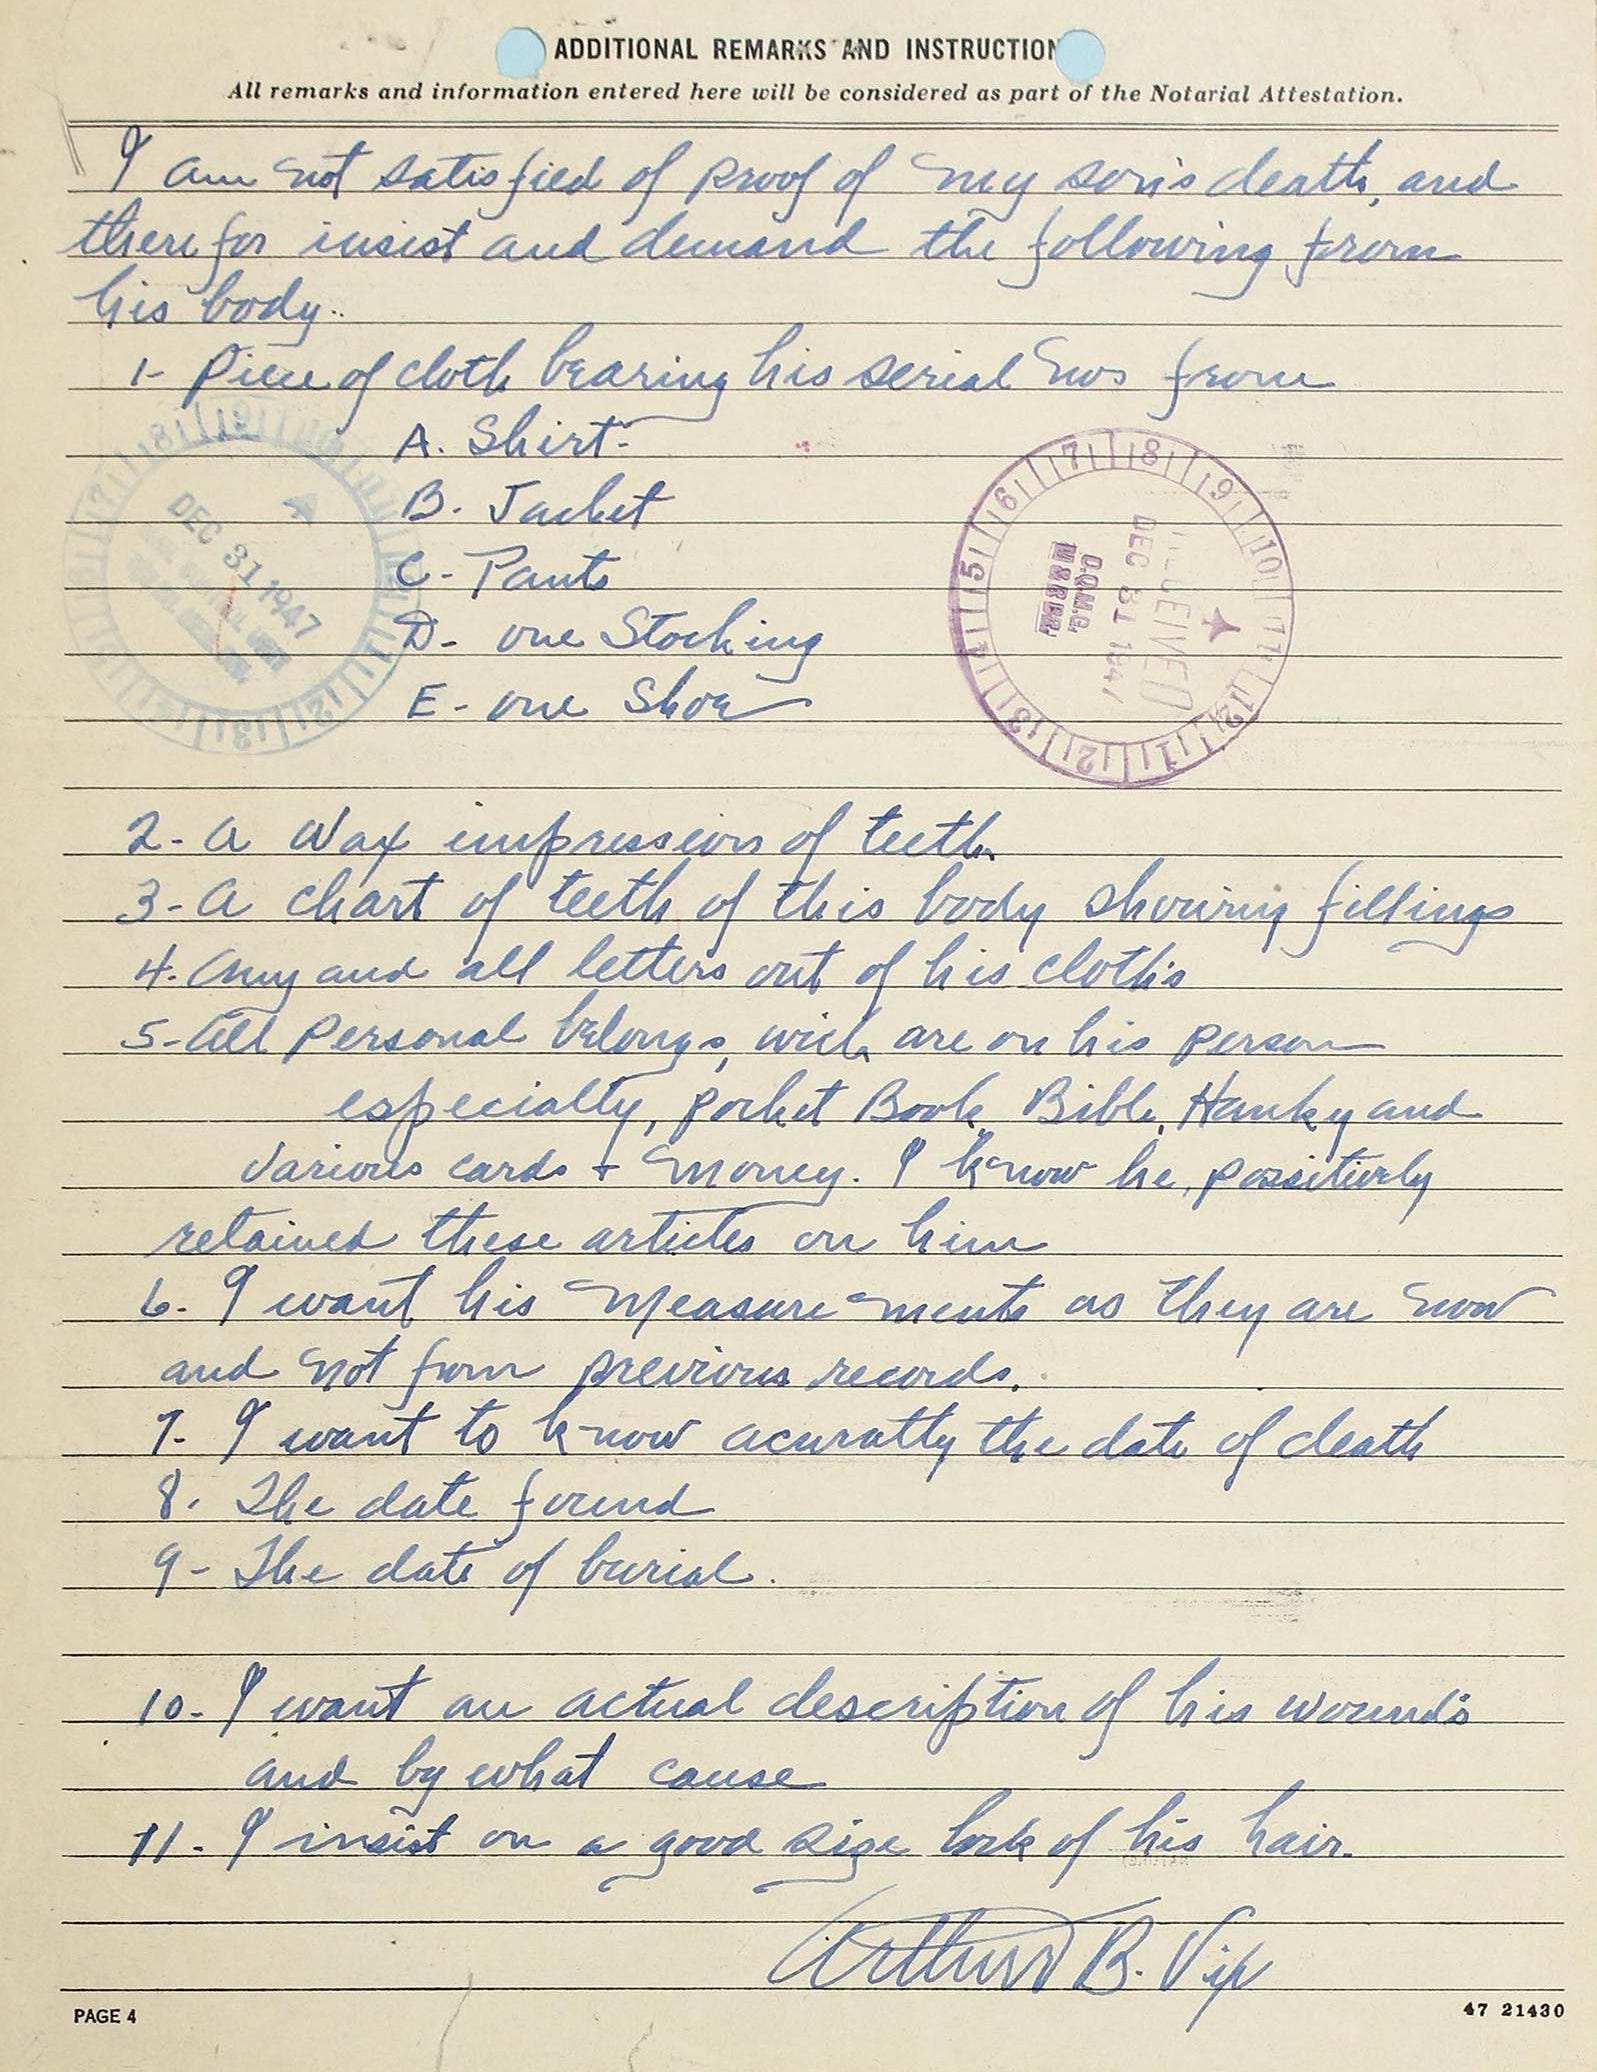 ADDITIONAL REMARKS AND INSTRUCTION
All remarks and information entered here will be considered as part of the Notarial Attestation.
I am not satisfied of proof of my son's death, and
therefor insist and demand the following from
his body..
1- Piece of cloth bearing his serial nos from
A. Shirt-
B. Jacket
C- Pants
D- one Stocking
E- one Shoe
DEC 31 1947
7 8 9 10 11 12 1 2 3 4 5 6
RECEIVED
DEC 31 1947
O.Q.M.G.
2- A Wax impression of teeth
3- A chart of teeth of this body showing fillings
4. Any and all letters out of his cloths
5- All personal belongs, wich are on his person
especialty, pocket Book, Bible, Hanky and
various cards + money. I know he, possitively
retained these articles on him
6- I want his measurements as they are now
and not from previous records.
7- I want to know acuratly the date of death
8. The date found
9- The date of burial.
10- I want an actual description of his wounds
and by what cause
11- I insist on a good size lock of his hair.
Arthur B. Vix
PAGE 4
47 21430